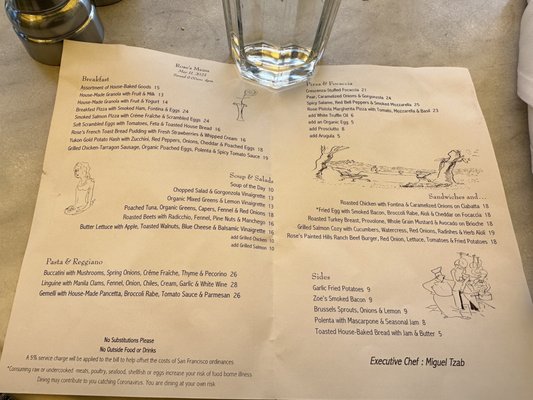 Rose's Menu
Breakfast
Assortment of House-Baked Goods 15
House-Made Granola with Fruit & Milk 13
House-Made Granola with Fruit & Yogurt 14
Breakfast Pizza with Smoked Ham, Fontina & Eggs 24
Smoked Salmon Pizza with Crème Fraîche & Scrambled Eggs 24
Soft Scrambled Eggs with Tomatoes, Feta & Toasted House Bread 16
Rose's French Toast Bread Pudding with Fresh Strawberries & Whipped Cream 16
Yukon Gold Potato Hash with Zucchini, Red Peppers, Onions, Cheddar & Poached Eggs 18
Grilled Chicken-Tarragon Sausage, Organic Poached Eggs, Polenta & Spicy Tomato Sauce 19
Soup & Salads
Soup of the Day 10
Chopped Salad & Gorgonzola Vinaigrette 13
Organic Mixed Greens & Lemon Vinaigrette 13
Poached Tuna, Organic Greens, Capers, Fennel & Red Onions 18
Roasted Beets with Radicchio, Fennel, Pine Nuts & Manchego 16
Butter Lettuce with Apple, Toasted Walnuts, Blue Cheese & Balsamic Vinaigrette 16
add Grilled Chicken 10
add Grilled Salmon 10
Pasta & Reggiano
Bucatini with Mushrooms, Spring Onions, Crème Fraîche, Thyme & Pecorino 26
Linguine with Manila Clams, Fennel, Onion, Chiles, Cream, Garlic & White Wine 28
Gemelli with House-Made Pancetta, Broccoli Rabe, Tomato Sauce & Parmesan 26
No Substitutions Please
No Outside Food or Drinks
A 5% service charge will be applied to the bill to help offset the costs of San Francisco ordinances
*Consuming raw or undercooked meats, poultry, seafood, shellfish or eggs increase your risk of food borne illness
Dining may contribute to you catching Coronavirus. You are dining at your own risk
Pizza & Focaccia
Crescenza-Stuffed Focaccia 21
Pear, Caramelized Onions & Gorgonzola 24
Spicy Salame, Red Bell Peppers & Smoked Mozzarella 25
Rose Pistola Margherita Pizza with Tomato, Mozzarella & Basil 23
add White Truffle Oil 6
add an Organic Egg 5
add Prosciutto 8
add Arugula 5
Sandwiches and...
Roasted Chicken with Fontina & Caramelized Onions on Ciabatta 18
*Fried Egg with Smoked Bacon, Broccoli Rabe, Aioli & Cheddar on Focaccia 18
Roasted Turkey Breast, Provolone, Whole Grain Mustard & Avocado on Brioche 18
Grilled Salmon Cozy with Cucumbers, Watercress, Red Onions, Radishes & Herb Aioli 19
Rose's Painted Hills Ranch Beef Burger, Red Onion, Lettuce, Tomatoes & Fried Potatoes 18
Sides
Garlic Fried Potatoes 9
Zoe's Smoked Bacon 9
Brussels Sprouts, Onions & Lemon 9
Polenta with Mascarpone & Seasonal Jam 8
Toasted House-Baked Bread with Jam & Butter 5
Executive Chef : Miguel Tzab